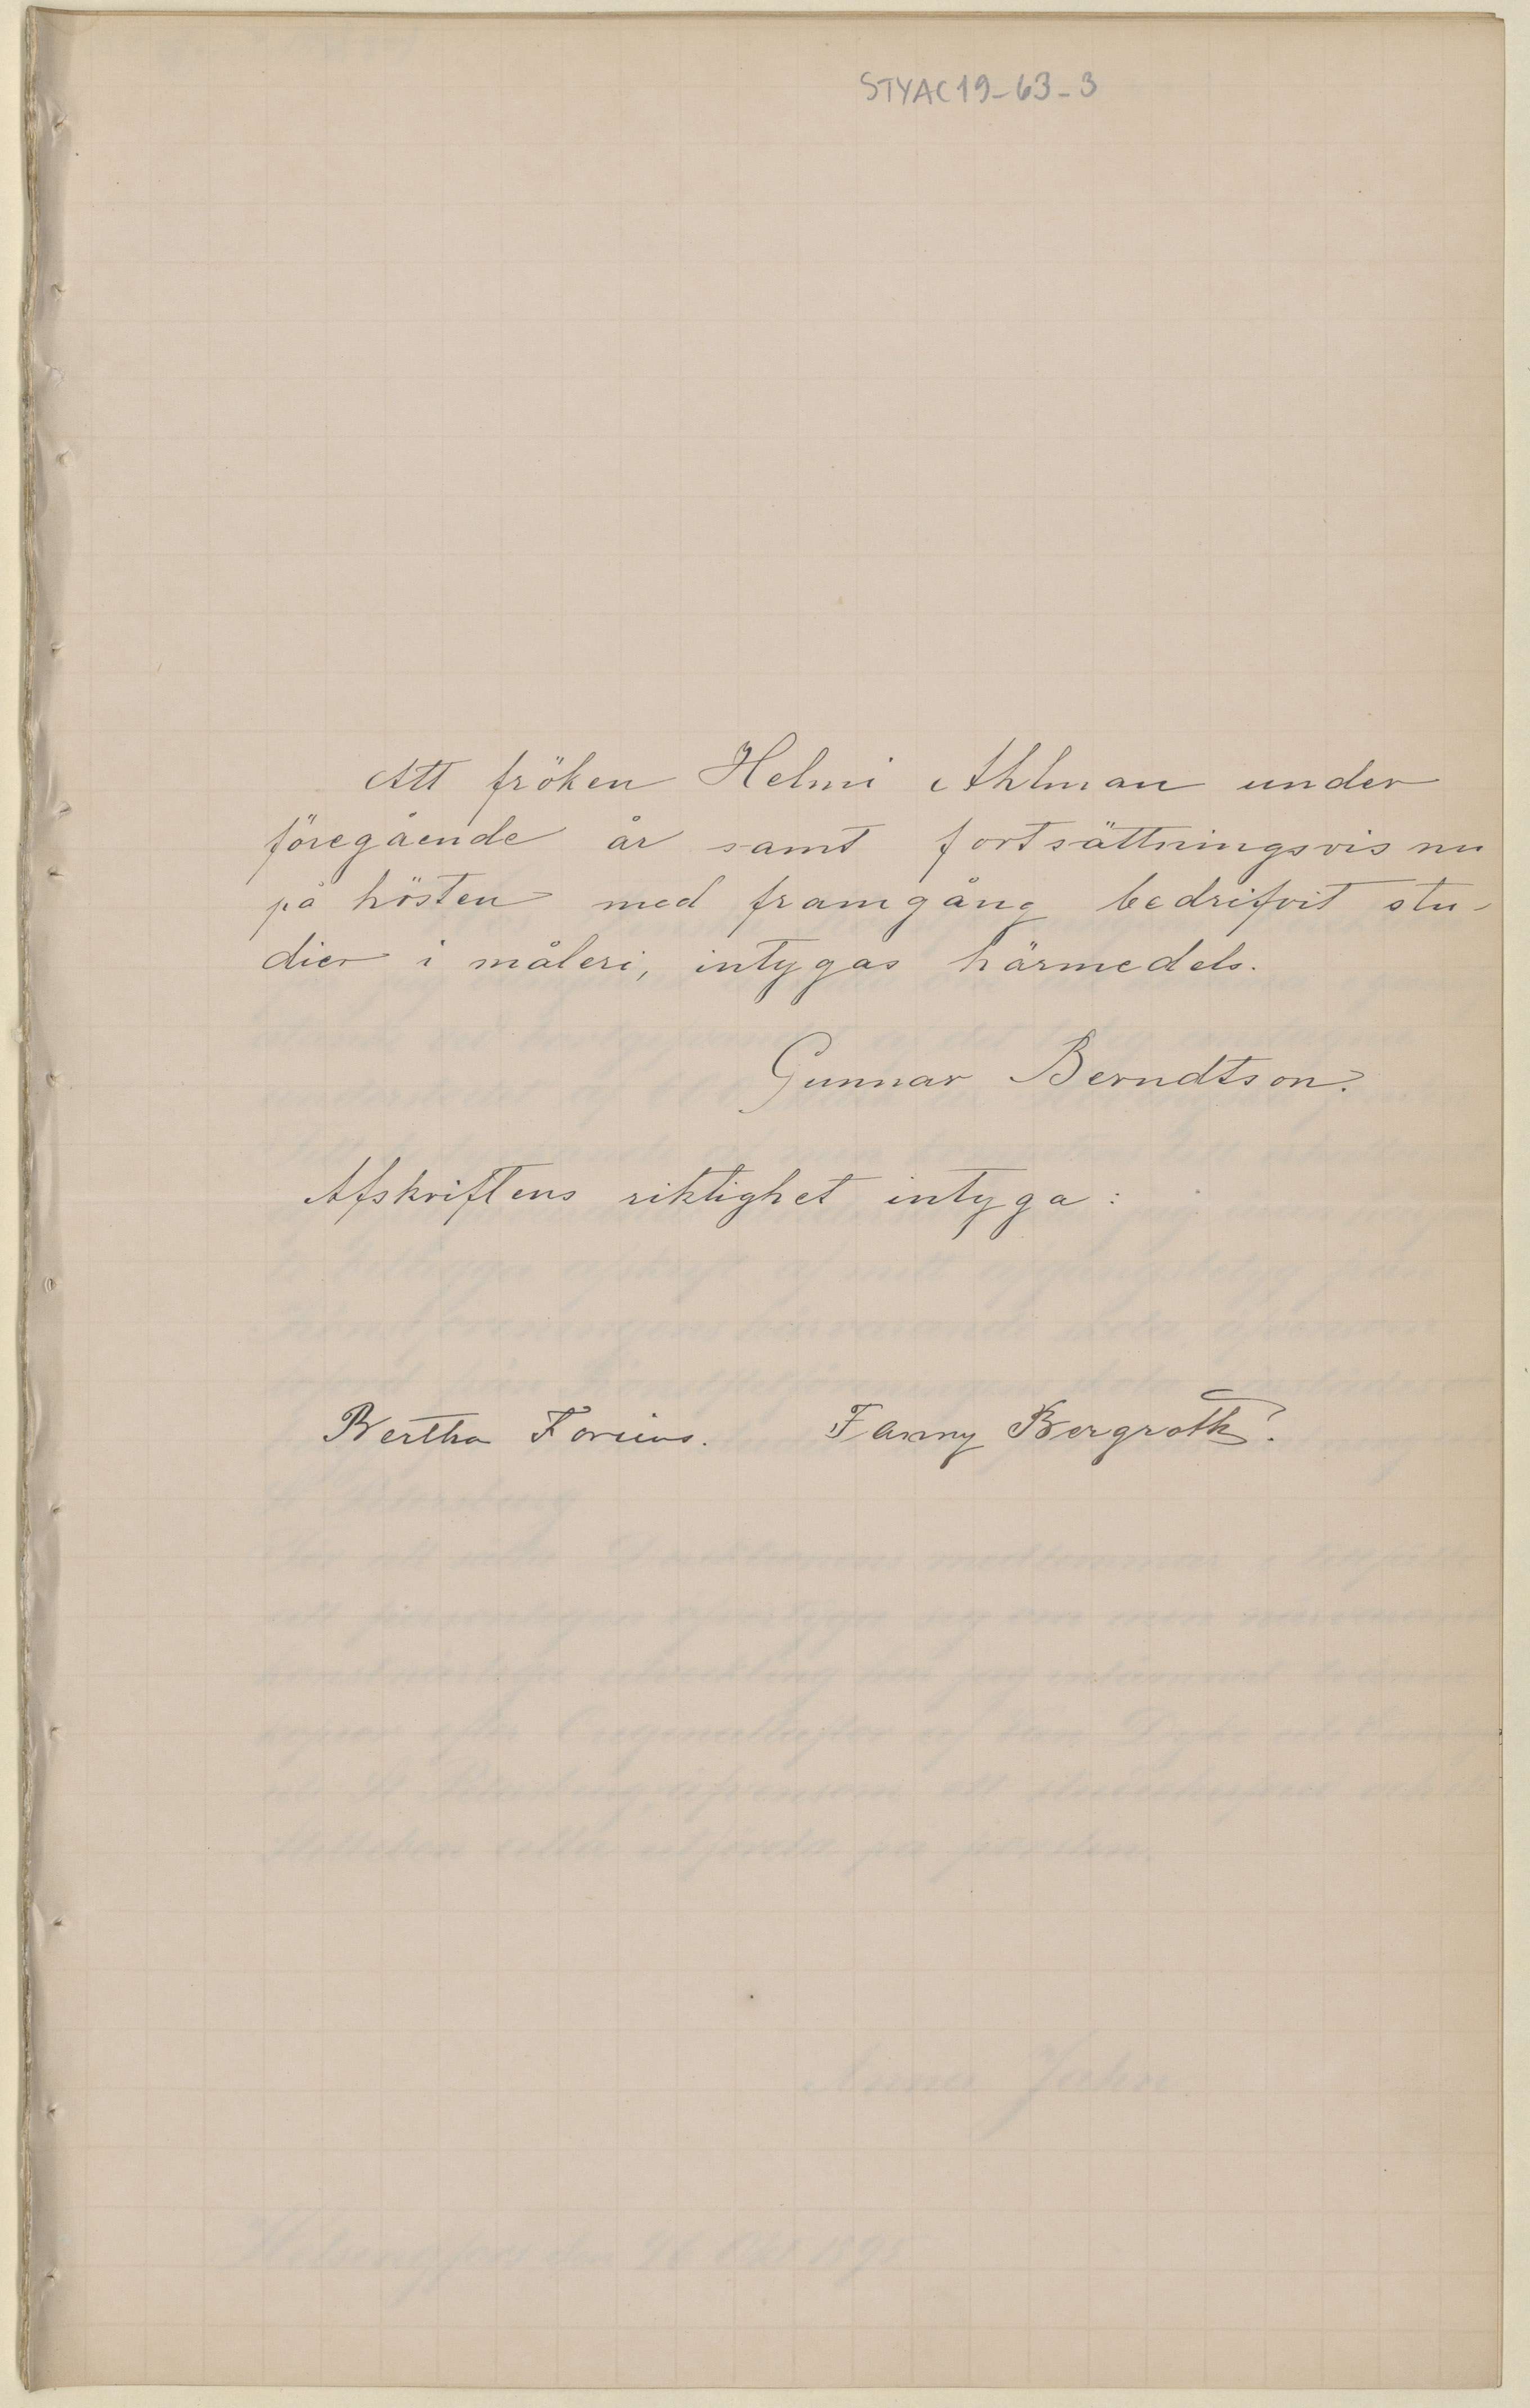 STYAC19-63-3
Att fröken Helmi Ahlman under
föregående år samt fortsättningsvis nu
på hösten med framgång bedrifvit stu-
dier i måleri, intygas härmedels.
Gunnar Berndtson.
Afskriftens riktighet intyga:
Bertha Forcius. Fanny Bergroth.
Anna Jahn